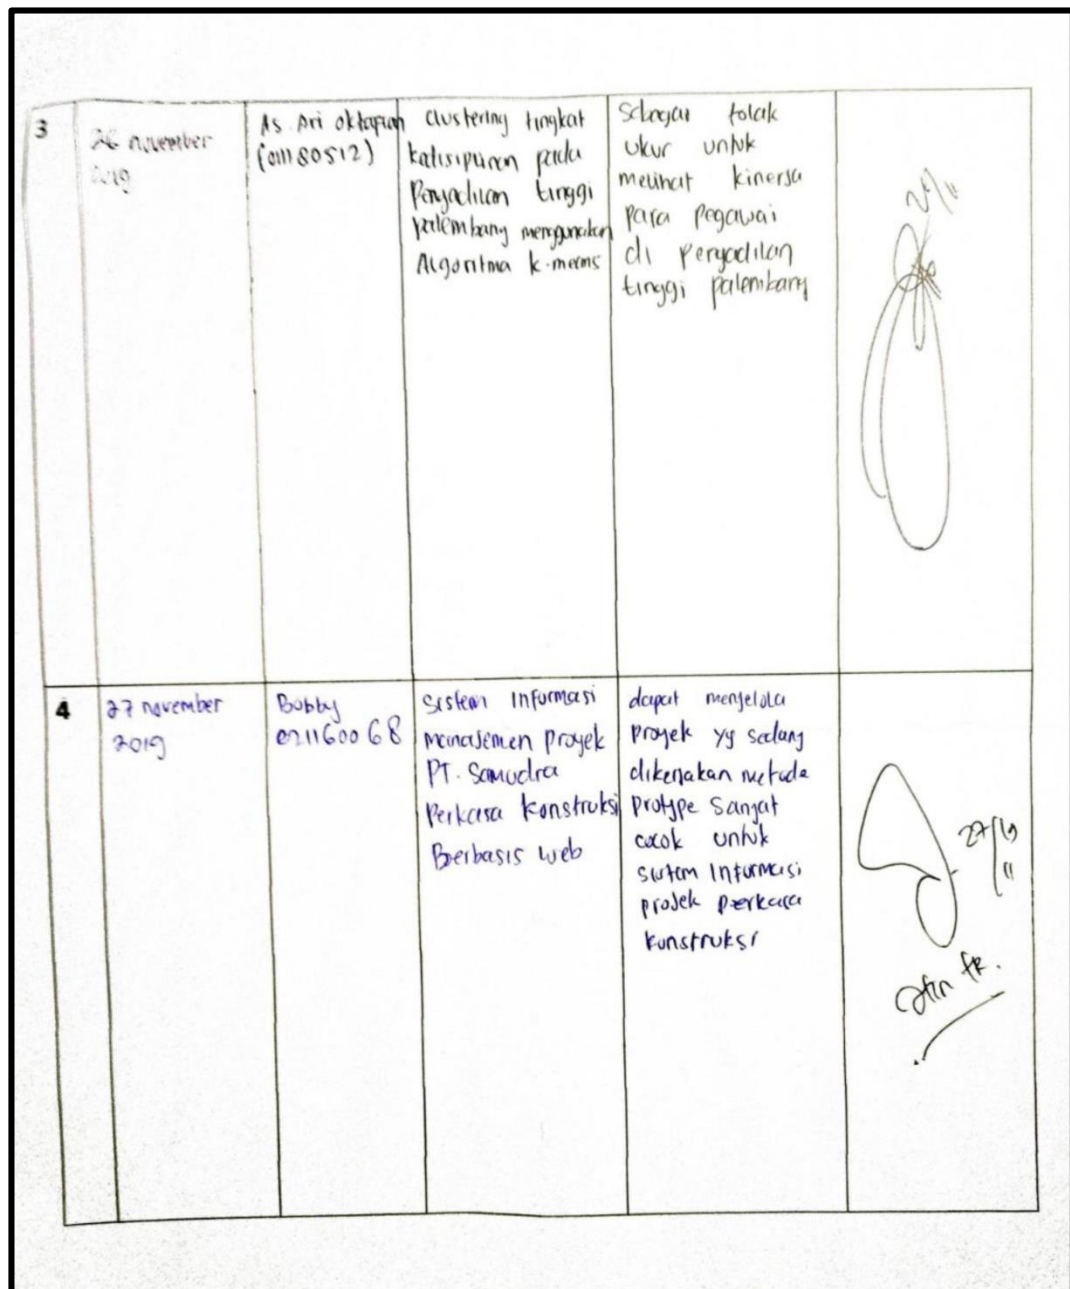 3
26 november
2019
As. Ari oktapian
(01180512)
clustering tingkat
kedisipinan pada
Pengadilan tinggi
palembang menggunakan
Algoritma k-means
Sebagai tolak
ukur untuk
melihat kinerja
para pegawai
di pengadilan
tinggi palembang
4
27 november
2019
Bobby
021160068
Sistem Informasi
manajemen proyek
PT. Samudra
Perkasa konstruksi
Berbasis web
dapat mengelola
Proyek yg sedang
dikerjakan metode
protype sangat
cocok untuk
sistem Informasi
projek perkasa
konstruksi
27/19
11